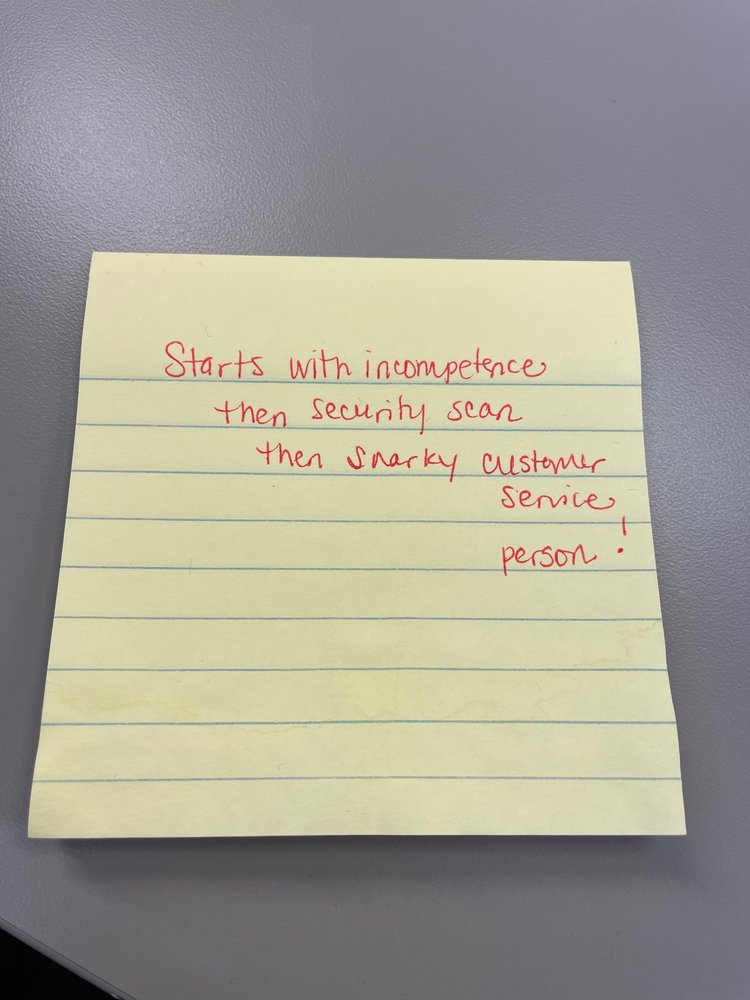 Starts with incompetence
then security scan
then snarky customer
service
person!